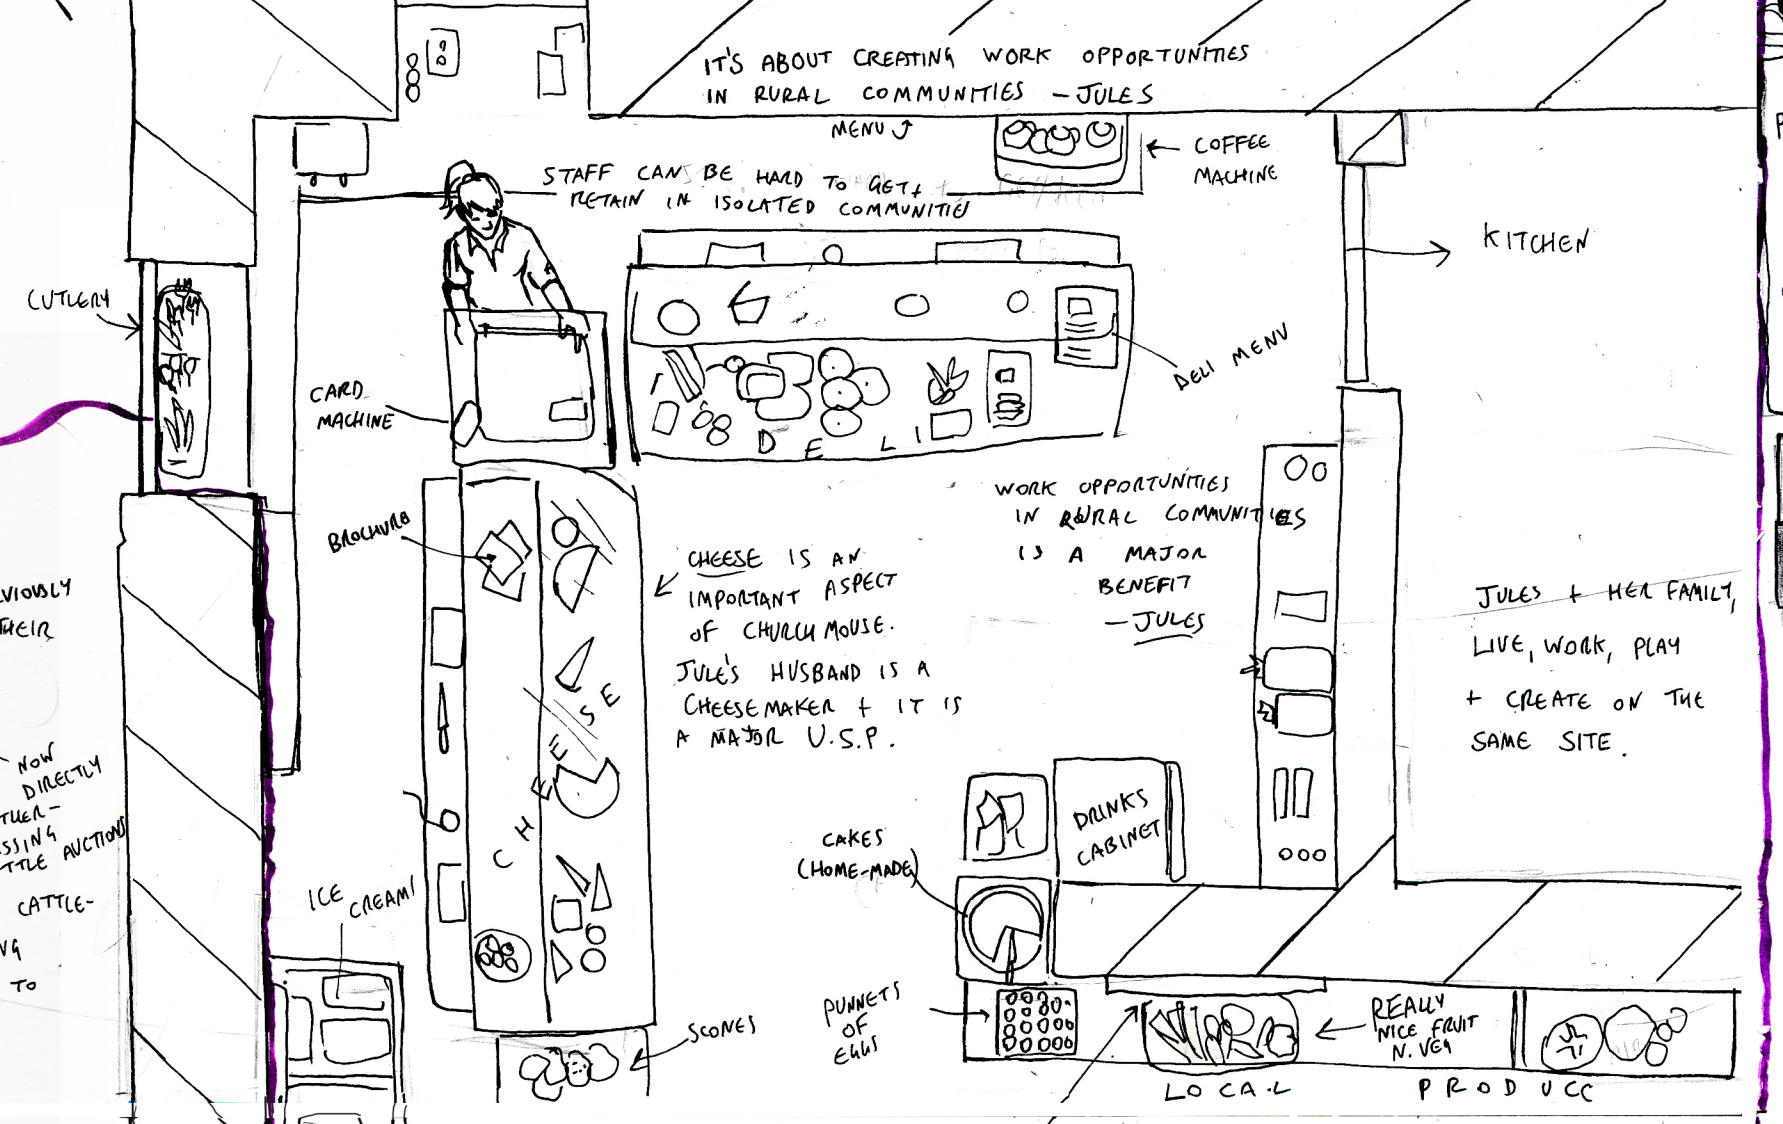 IT'S ABOUT CREATING WORK OPPORTUNITIES
IN RURAL COMMUNITIES - JULES
MENU
COFFEE
MACHINE
STAFF CAN BE HARD TO GET +
RETAIN IN ISOLATED COMMUNITIES
KITCHEN
CUTLERY
DELI MENU
CARD
MACHINE
DELI
BROCHURE
WORK OPPORTUNITIES
IN RURAL COMMUNITIES
IS A MAJOR
BENEFIT
- JULES
CHEESE IS AN
IMPORTANT ASPECT
OF CHURCHMOUSE.
JULE'S HUSBAND IS A
CHEESEMAKER + IT IS
A MAJOR U.S.P.
CHEESE
JULES + HER FAMILY,
LIVE, WORK, PLAY
+ CREATE ON THE
SAME SITE.
VIOUSLY
THEIR
NOW
DIRECTLY
THER-
SSING
TTLE AUCTIONS
CATTLE-
NG
TO
ICE CREAM!
DRINKS
CABINET
CAKES
(HOME-MADE)
PUNNETS
OF
EGGS
SCONES
REALLY
NICE FRUIT
N. VEG
LOCAL PRODUCE